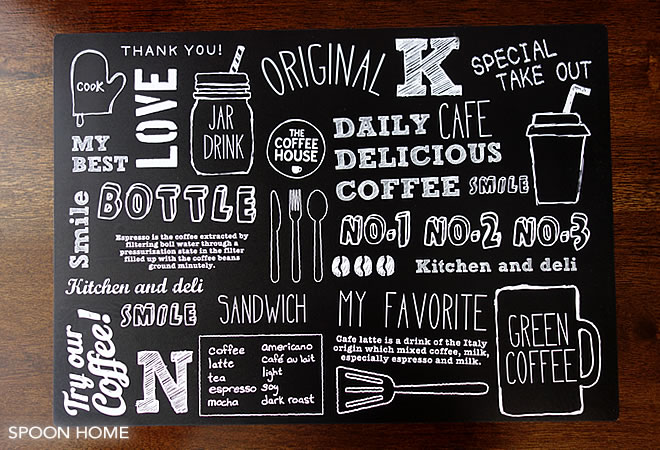 THANK YOU!
COOK
LOVE
JAR
DRINK
ORIGINAL
K
SPECIAL
TAKE OUT
MY
BEST
THE
COFFEE
HOUSE
DAILY CAFE
DELICIOUS
COFFEE SMILE
Smile
BOTTLE
Espresso is the coffee extracted by
filtering boil water through a
pressurization state in the filter
filled up with the coffee beans
ground minutely.
NO.1 NO.2 NO.3
Kitchen and deli
Kitchen and deli
SMILE
SANDWICH
MY FAVORITE
Try our
Coffee!
N
Coffee
latte
tea
espresso
mocha
americano
café au lait
light
soy
dark roast
Cafe latte is a drink of the Italy
origin which mixed coffee, milk,
especially espresso and milk.
GREEN
COFFEE
SPOON HOME